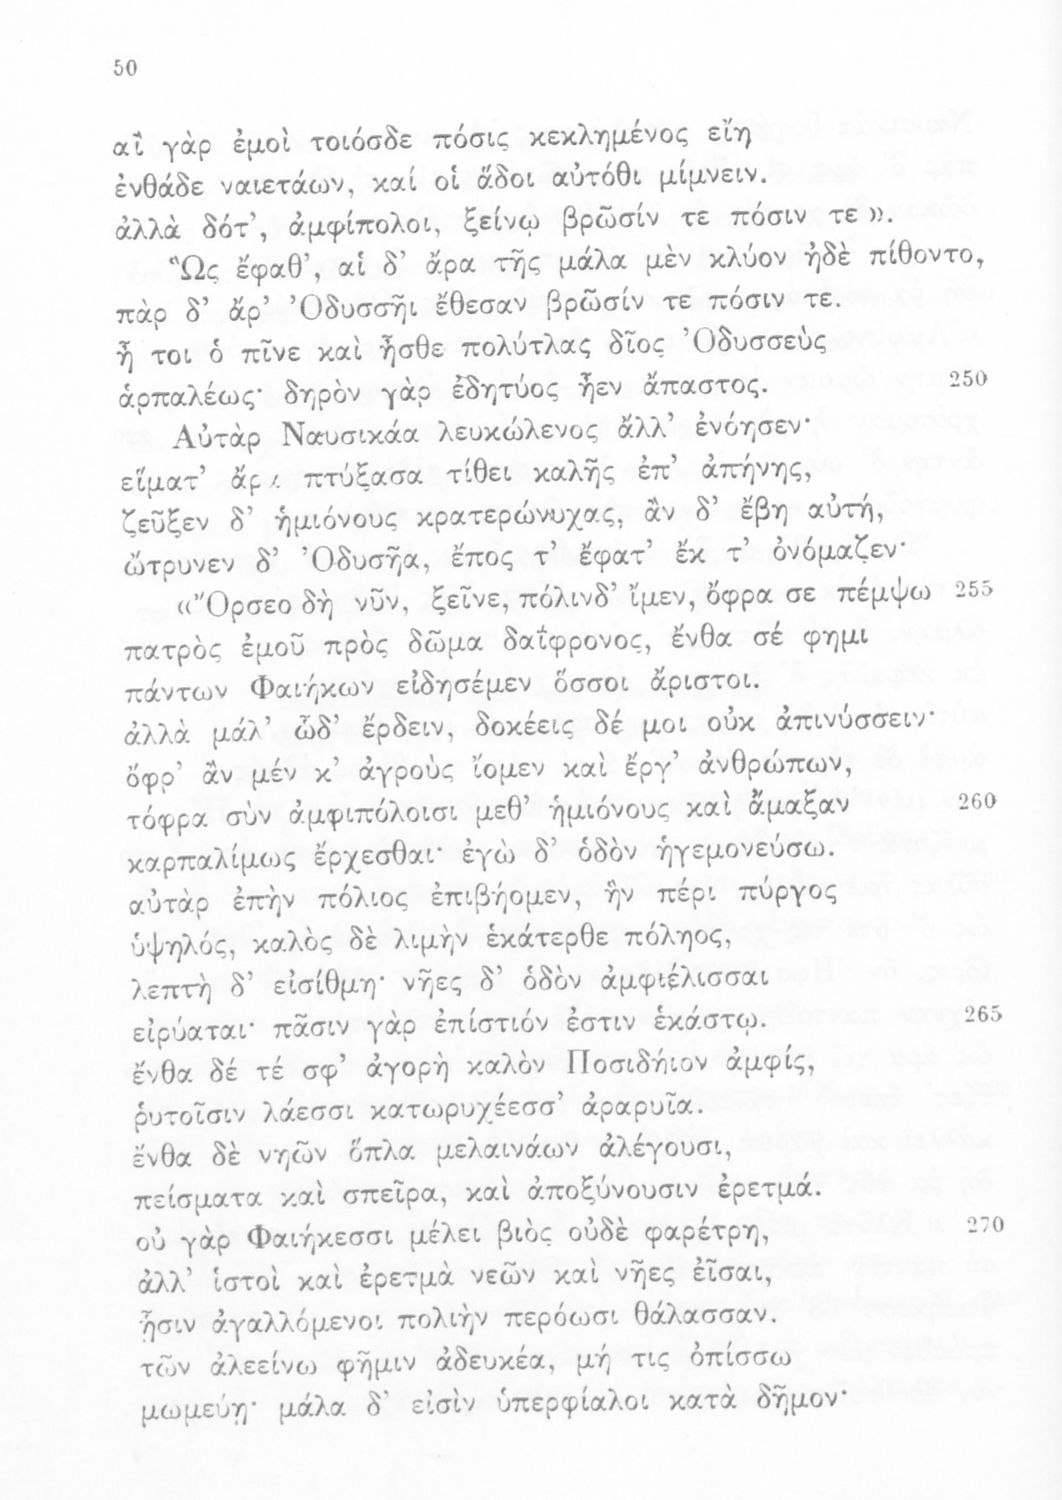 50
αἲ γὰρ ἐμοὶ τοιόσδε πόσις κεκλημένος εἴη
ἐνθάδε ναιετάων, καί οἱ ἅδοι αὐτόθι μίμνειν.
ἀλλὰ δότ’, ἀμφίπολοι, ξείνῳ βρῶσίν τε πόσιν τε ».
Ὣς ἔφαθ’, αἱ δ’ ἄρα τῆς μάλα μὲν κλύον ἠδὲ πίθοντο,
πὰρ δ’ ἄρ’ Ὀδυσσῆι ἔθεσαν βρῶσίν τε πόσιν τε.
ἦ τοι ὁ πῖνε καὶ ἦσθε πολύτλας δῖος Ὀδυσσεὺς
ἁρπαλέως· δηρὸν γὰρ ἐδητύος ἦεν ἄπαστος. 250
Αὐτὰρ Ναυσικάα λευκώλενος ἄλλ’ ἐνόησεν·
εἵματ’ ἄρα πτύξασα τίθει καλῆς ἐπ’ ἀπήνης,
ζεῦξεν δ’ ἡμιόνους κρατερώνυχας, ἂν δ’ ἔβη αὐτή,
ὤτρυνεν δ’ Ὀδυσῆα, ἔπος τ’ ἔφατ’ ἔκ τ’ ὀνόμαζεν·
« Ὄρσεο δὴ νῦν, ξεῖνε, πόλινδ’ ἴμεν, ὄφρα σε πέμψω 255
πατρὸς ἐμοῦ πρὸς δῶμα δαΐφρονος, ἔνθα σέ φημι
πάντων Φαιήκων εἰδησέμεν ὅσσοι ἄριστοι.
ἀλλὰ μάλ’ ὧδ’ ἔρδειν, δοκέεις δέ μοι οὐκ ἀπινύσσειν·
ὄφρ’ ἂν μέν κ’ ἀγροὺς ἴομεν καὶ ἔργ’ ἀνθρώπων,
τόφρα σὺν ἀμφιπόλοισι μεθ’ ἡμιόνους καὶ ἄμαξαν 260
καρπαλίμως ἔρχεσθαι· ἐγὼ δ’ ὁδὸν ἡγεμονεύσω.
αὐτὰρ ἐπὴν πόλιος ἐπιβήομεν, ἣν πέρι πύργος
ὑψηλός, καλὸς δὲ λιμὴν ἑκάτερθε πόληος,
λεπτὴ δ’ εἰσίθμη· νῆες δ’ ὁδὸν ἀμφιέλισσαι
εἰρύαται· πᾶσιν γὰρ ἐπίστιόν ἐστιν ἑκάστῳ. 265
ἔνθα δέ τέ σφ’ ἀγορὴ καλὸν Ποσιδήιον ἀμφίς,
ῥυτοῖσιν λάεσσι κατωρυχέεσσ’ ἀραρυῖα.
ἔνθα δὲ νηῶν ὅπλα μελαινάων ἀλέγουσι,
πείσματα καὶ σπεῖρα, καὶ ἀποξύνουσιν ἐρετμά.
οὐ γὰρ Φαιήκεσσι μέλει βιὸς οὐδὲ φαρέτρη, 270
ἀλλ’ ἱστοὶ καὶ ἐρετμὰ νεῶν καὶ νῆες ἐῖσαι,
ᾗσιν ἀγαλλόμενοι πολιὴν περόωσι θάλασσαν.
τῶν ἀλεείνω φῆμιν ἀδευκέα, μή τις ὀπίσσω
μωμεύῃ· μάλα δ’ εἰσὶν ὑπερφίαλοι κατὰ δῆμον·